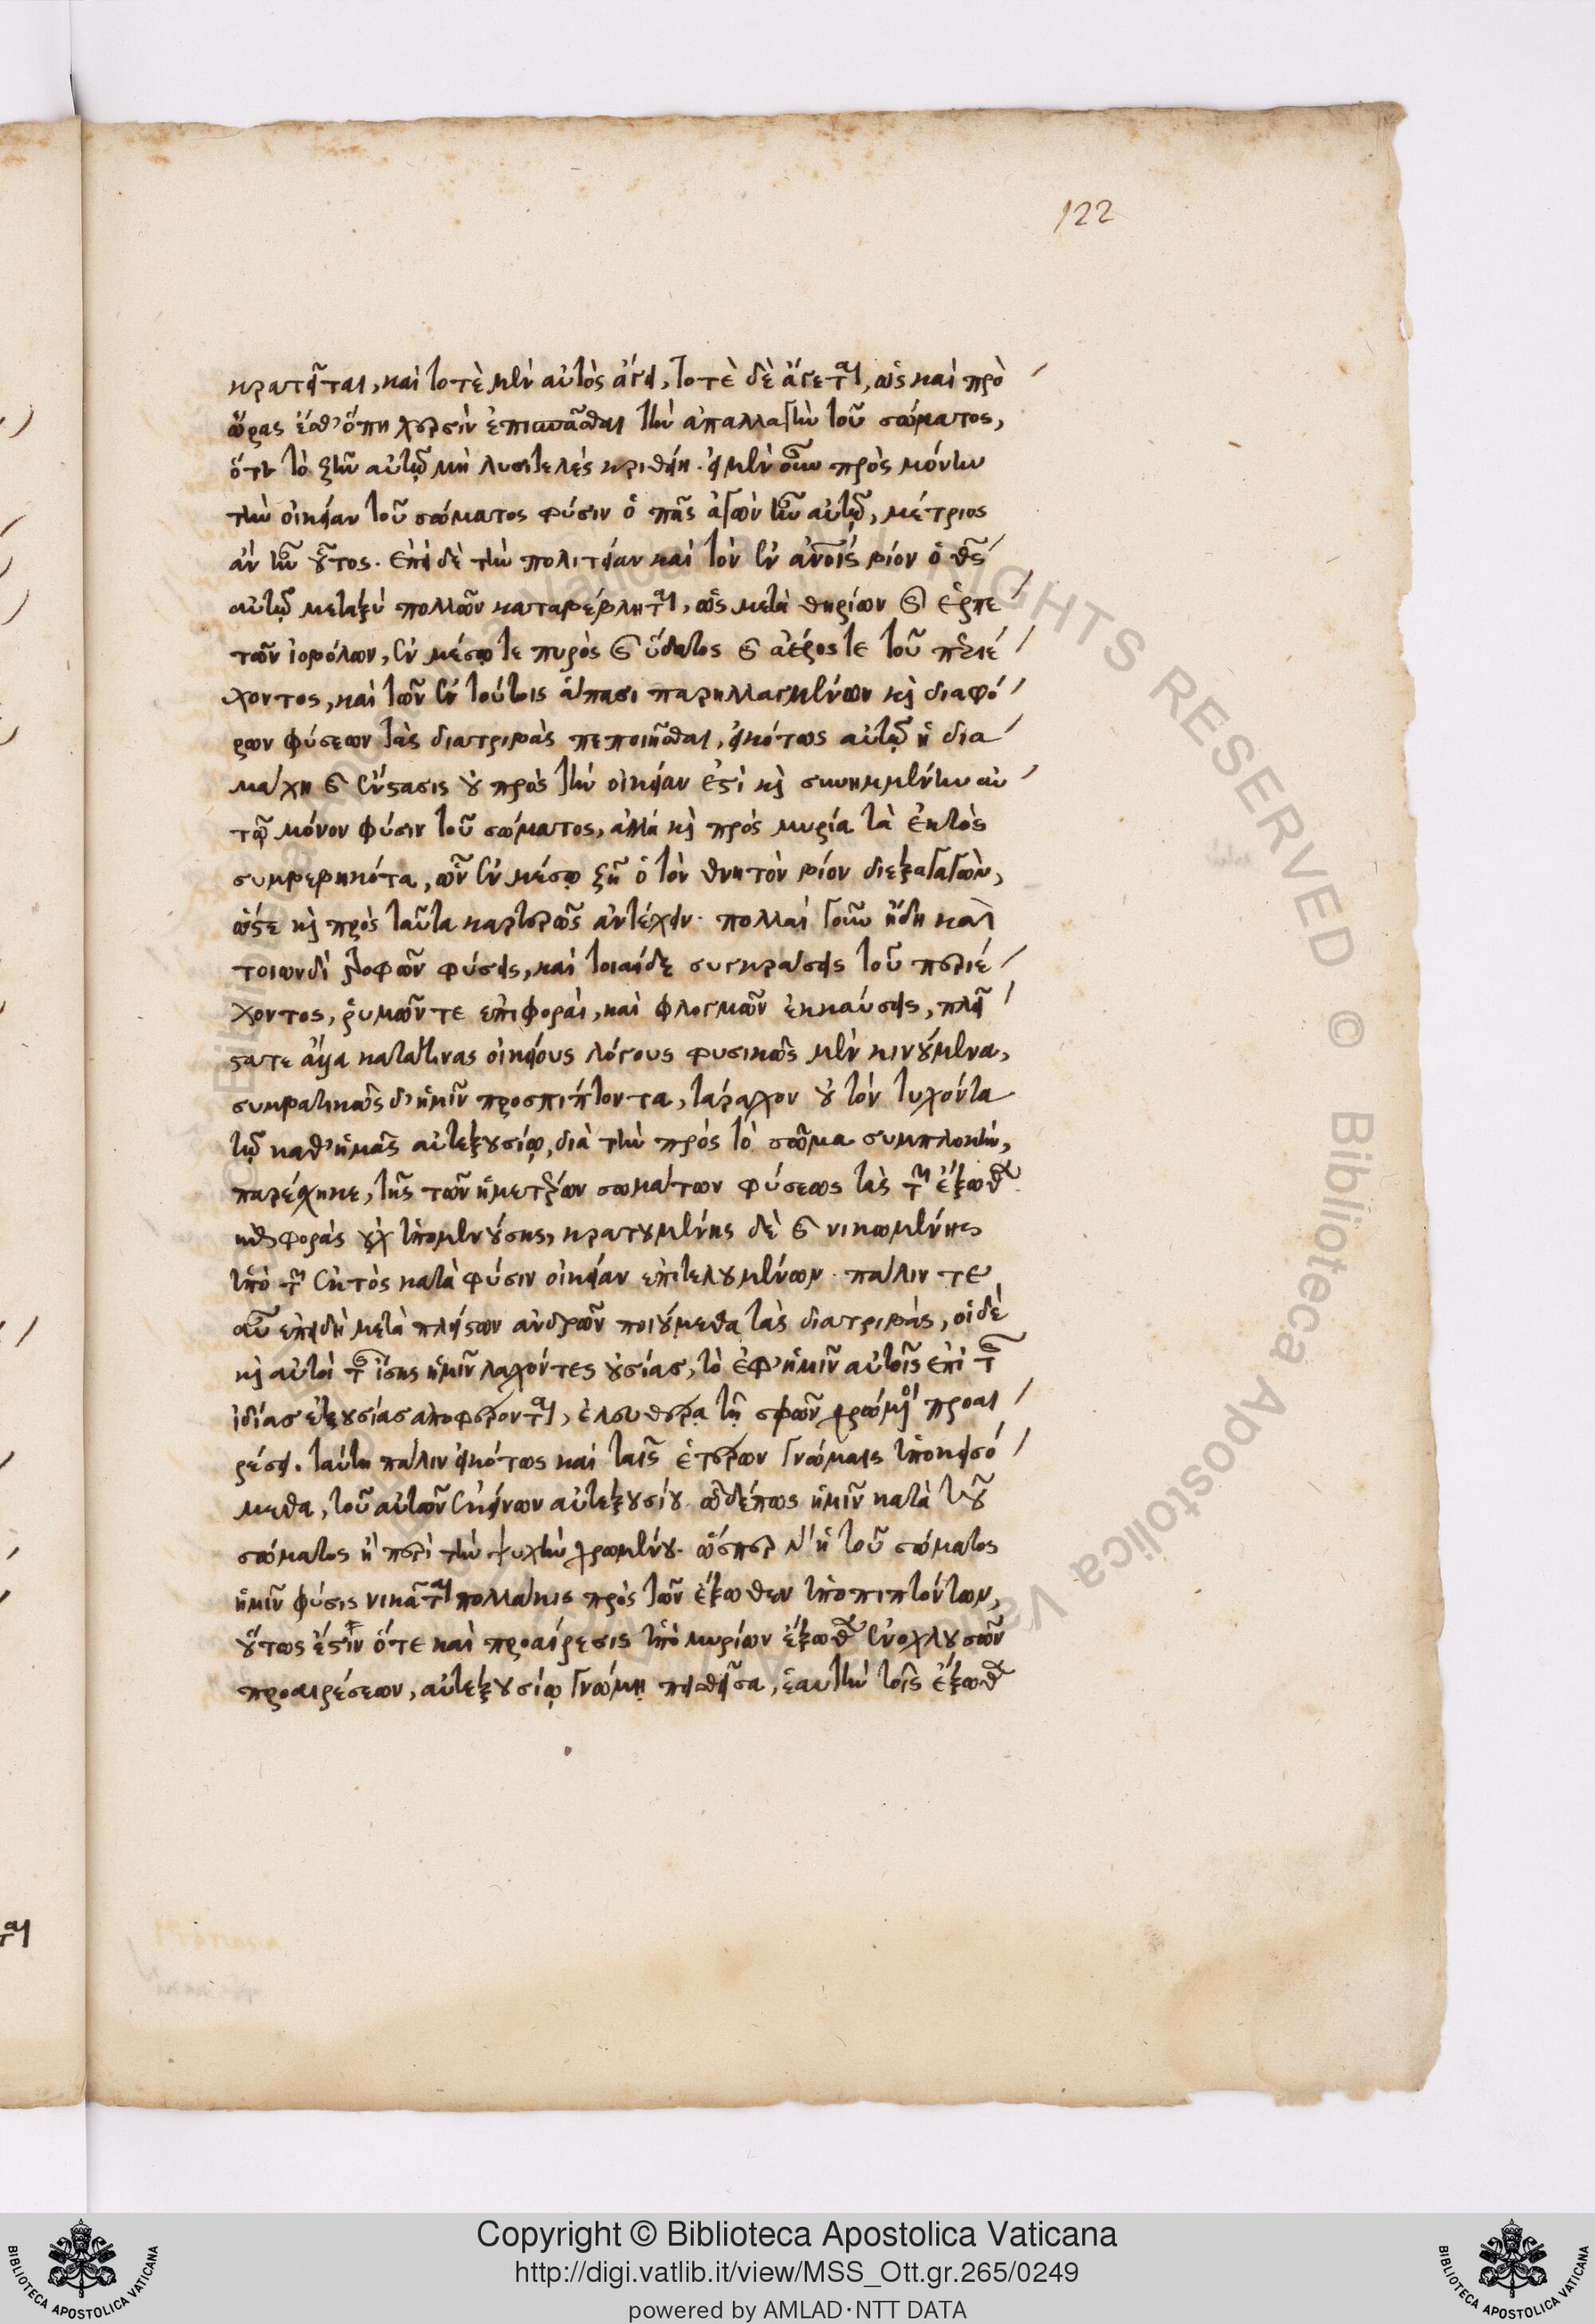 122
κρατεῖται, καὶ τοτὲ μὲν αὐτὸς ἄγει, τοτὲ δὲ ἄγεται, ὡς καὶ πρὸ
ὥρας ἔσθ' ὅπη χερσὶν ἐπισπᾶσθαι τὴν ἀπαλλαγὴν τοῦ σώματος,
ὅτε τὸ ζῆν αὐτῷ μὴ λυσιτελὲς κριθείη. εἰ μὲν οὖν πρὸς μόνην
τὴν οἰκείαν τοῦ σώματος φύσιν ὁ πᾶς ἀγὼν ἦν αὐτῷ, μέτριος
ἂν ἦν οὗτος. ἐπεὶ δὲ τὴν πολιτείαν καὶ τὸν ἐν ἀνοις βίον ὁ θς
αὐτῷ μεταξὺ πολλῶν καταβέβληται, ὡς μετὰ θηρίων καὶ ἑρπε
τῶν ἰοβόλων, ἐν μέσῳ τε πυρὸς καὶ ὕδατος καὶ ἀέρος τε τοῦ περιέ
χοντος, καὶ τῶν ἐν τούτοις ἅπασι παρηλλαγμένων καὶ διαφό
ρων φύσεων τὰς διατριβὰς πεποιῆσθαι, εἰκότως αὐτῷ ἡ δια
μάχη καὶ ἔνστασις οὐ πρὸς τὴν οἰκείαν ἐστὶ καὶ συνημμένην αὐ
τῷ μόνον φύσιν τοῦ σώματος, ἀλλὰ καὶ πρὸς μυρία τὰ ἐκτὸς
συμβεβηκότα, ὧν ἐν μέσῳ ζῇ ὁ τὸν θνητὸν βίον διεξαγαγών,
ὥστε καὶ πρὸς ταῦτα καρτερῶς ἀντέχειν. πολλαὶ γοῦν ἤδη καὶ
τοιωνδὶ τροφῶν φύσεις, καὶ τοιαίδε συγκράσεις τοῦ περιέ
χοντος, ῥυμῶν τε ἐπιφοραὶ, καὶ φλογμῶν ἐκκαύσεις, πλεῖ
στά τε ἄλλα κατά τινας οἰκείους λόγους φυσικῶς μὲν κινούμενα,
συμβατικῶς δ' ἡμῖν προσπίπτοντα, τάραχον οὐ τὸν τυχόντα
τῷ καθ' ἡμᾶς αὐτεξουσίῳ, διὰ τὴν πρὸς τὸ σῶμα συμπλοκὴν,
παρέσχηκε, τῆς τῶν ἡμετέρων σωμάτων φύσεως τὰς τῶν ἔξωθεν
καταφορὰς οὐχ ὑπομενούσης, κρατουμένης δὲ καὶ νικωμένης
ὑπὸ τῶν ἐκτὸς κατὰ φύσιν οἰκείαν ἐπιτελουμένων. πάλιν τε
αὖ ἐπειδὴ μετὰ πλείστων ἀνδρῶν ποιούμεθα τὰς διατριβὰς, οἱ δὲ
καὶ αὐτοὶ τῆς ἴσης ἡμῖν λαχόντες οὐσίας, τὸ ἐφ' ἡμῖν αὐτοῖς ἐπὶ τῆς
ἰδίας ἐξουσίας ἀποφέρονται, ἐλευθέρᾳ τῇ σφῶν χρώμενοι προαι
ρέσει. ταύτῃ πάλιν εἰκότως καὶ ταῖς ἑτέρων γνώμαις ὑποπεισό
μεθα, τοῦ αὐτῶν ἐκείνων αὐτεξουσίου ὡδέπως ἡμῖν κατὰ τοῦ
σώματος ἢ περὶ τὴν ψυχὴν χρωμένου. ὥσπερ δ' ἡ τοῦ σώματος
ἡμῖν φύσις νικᾶται πολλάκις πρὸς τῶν ἔξωθεν ὑποπιπτόντων,
οὕτως ἔστιν ὅτε καὶ προαίρεσις ὑπὸ μυρίων ἔξωθεν ἐνοχλουσῶν
προαιρέσεων, αὐτεξουσίῳ γνώμῃ πεισθεῖσα, ἑαυτὴν τοῖς ἔξωθεν
Copyright © Biblioteca Apostolica Vaticana
http://digi.vatlib.it/view/MSS_Ott.gr.265/0249
powered by AMLAD·NTT DATA